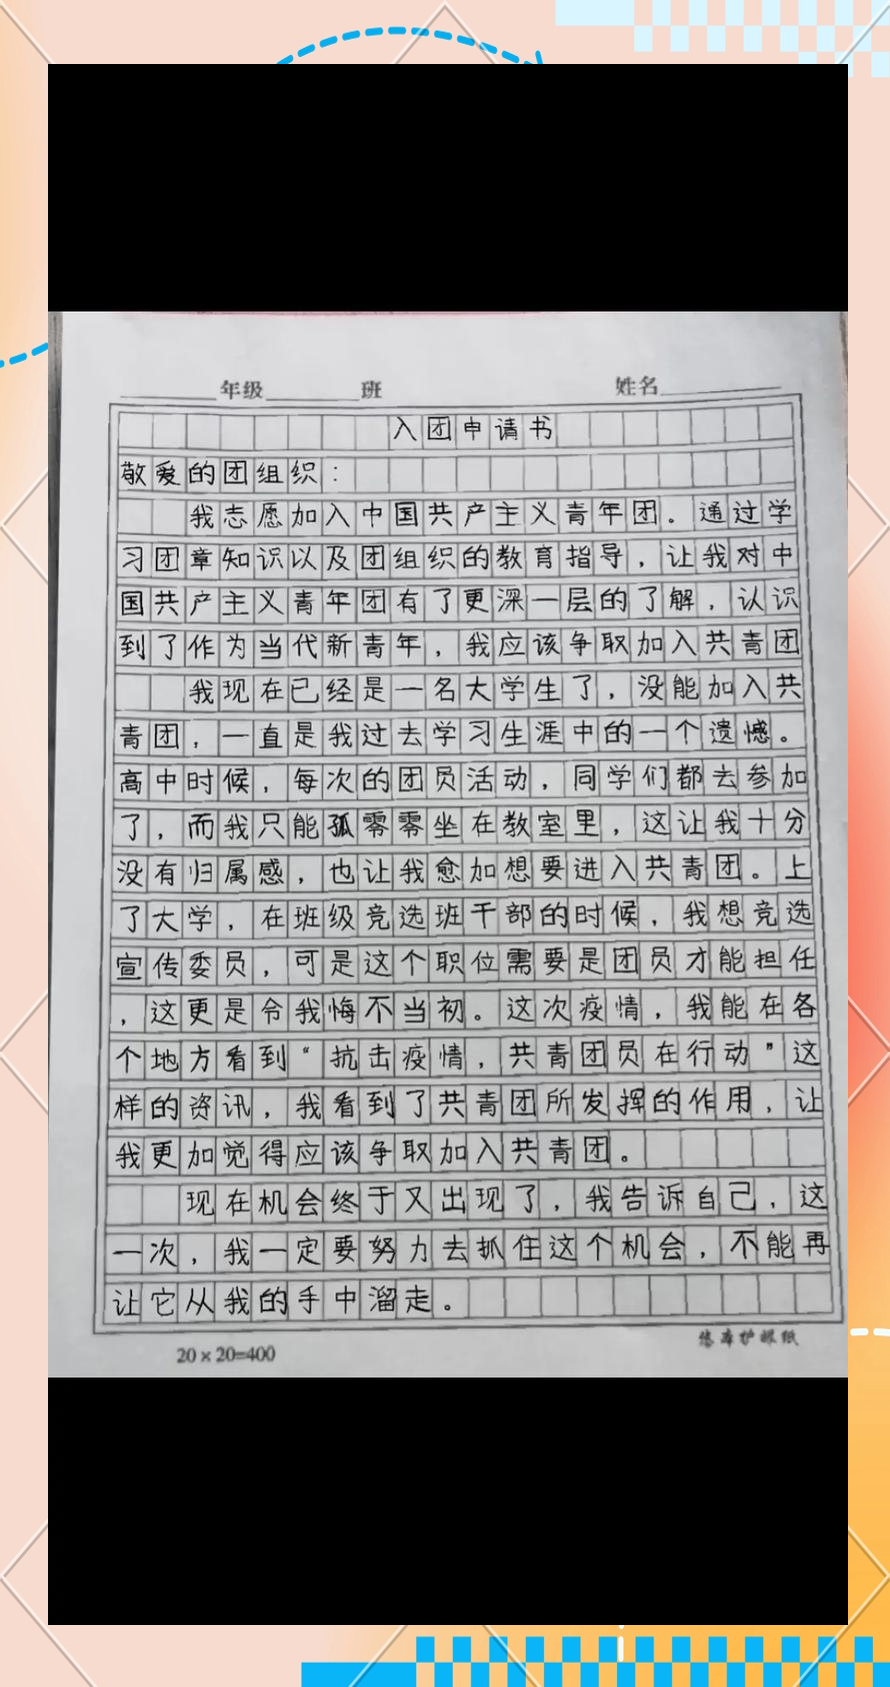 年级 班 姓名
入团申请书
敬爱的团组织：
我志愿加入中国共产主义青年团。通过学
习团章知识以及团组织的教育指导，让我对中
国共产主义青年团有了更深一层的了解，认识
到了作为当代新青年，我应该争取加入共青团
我现在已经是一名大学生了，没能加入共
青团，一直是我过去学习生涯中的一个遗憾。
高中时候，每次的团员活动，同学们都去参加
了，而我只能孤零零坐在教室里，这让我十分
没有归属感，也让我愈加想要进入共青团。上
了大学，在班级竞选班干部的时候，我想竞选
宣传委员，可是这个职位需要是团员才能担任
，这更是令我悔不当初。这次疫情，我能在各
个地方看到“抗击疫情，共青团员在行动”这
样的资讯，我看到了共青团所发挥的作用，让
我更加觉得应该争取加入共青团。
现在机会终于又出现了，我告诉自己，这
一次，我一定要努力去抓住这个机会，不能再
让它从我的手中溜走。
20×20=400
护眼纸